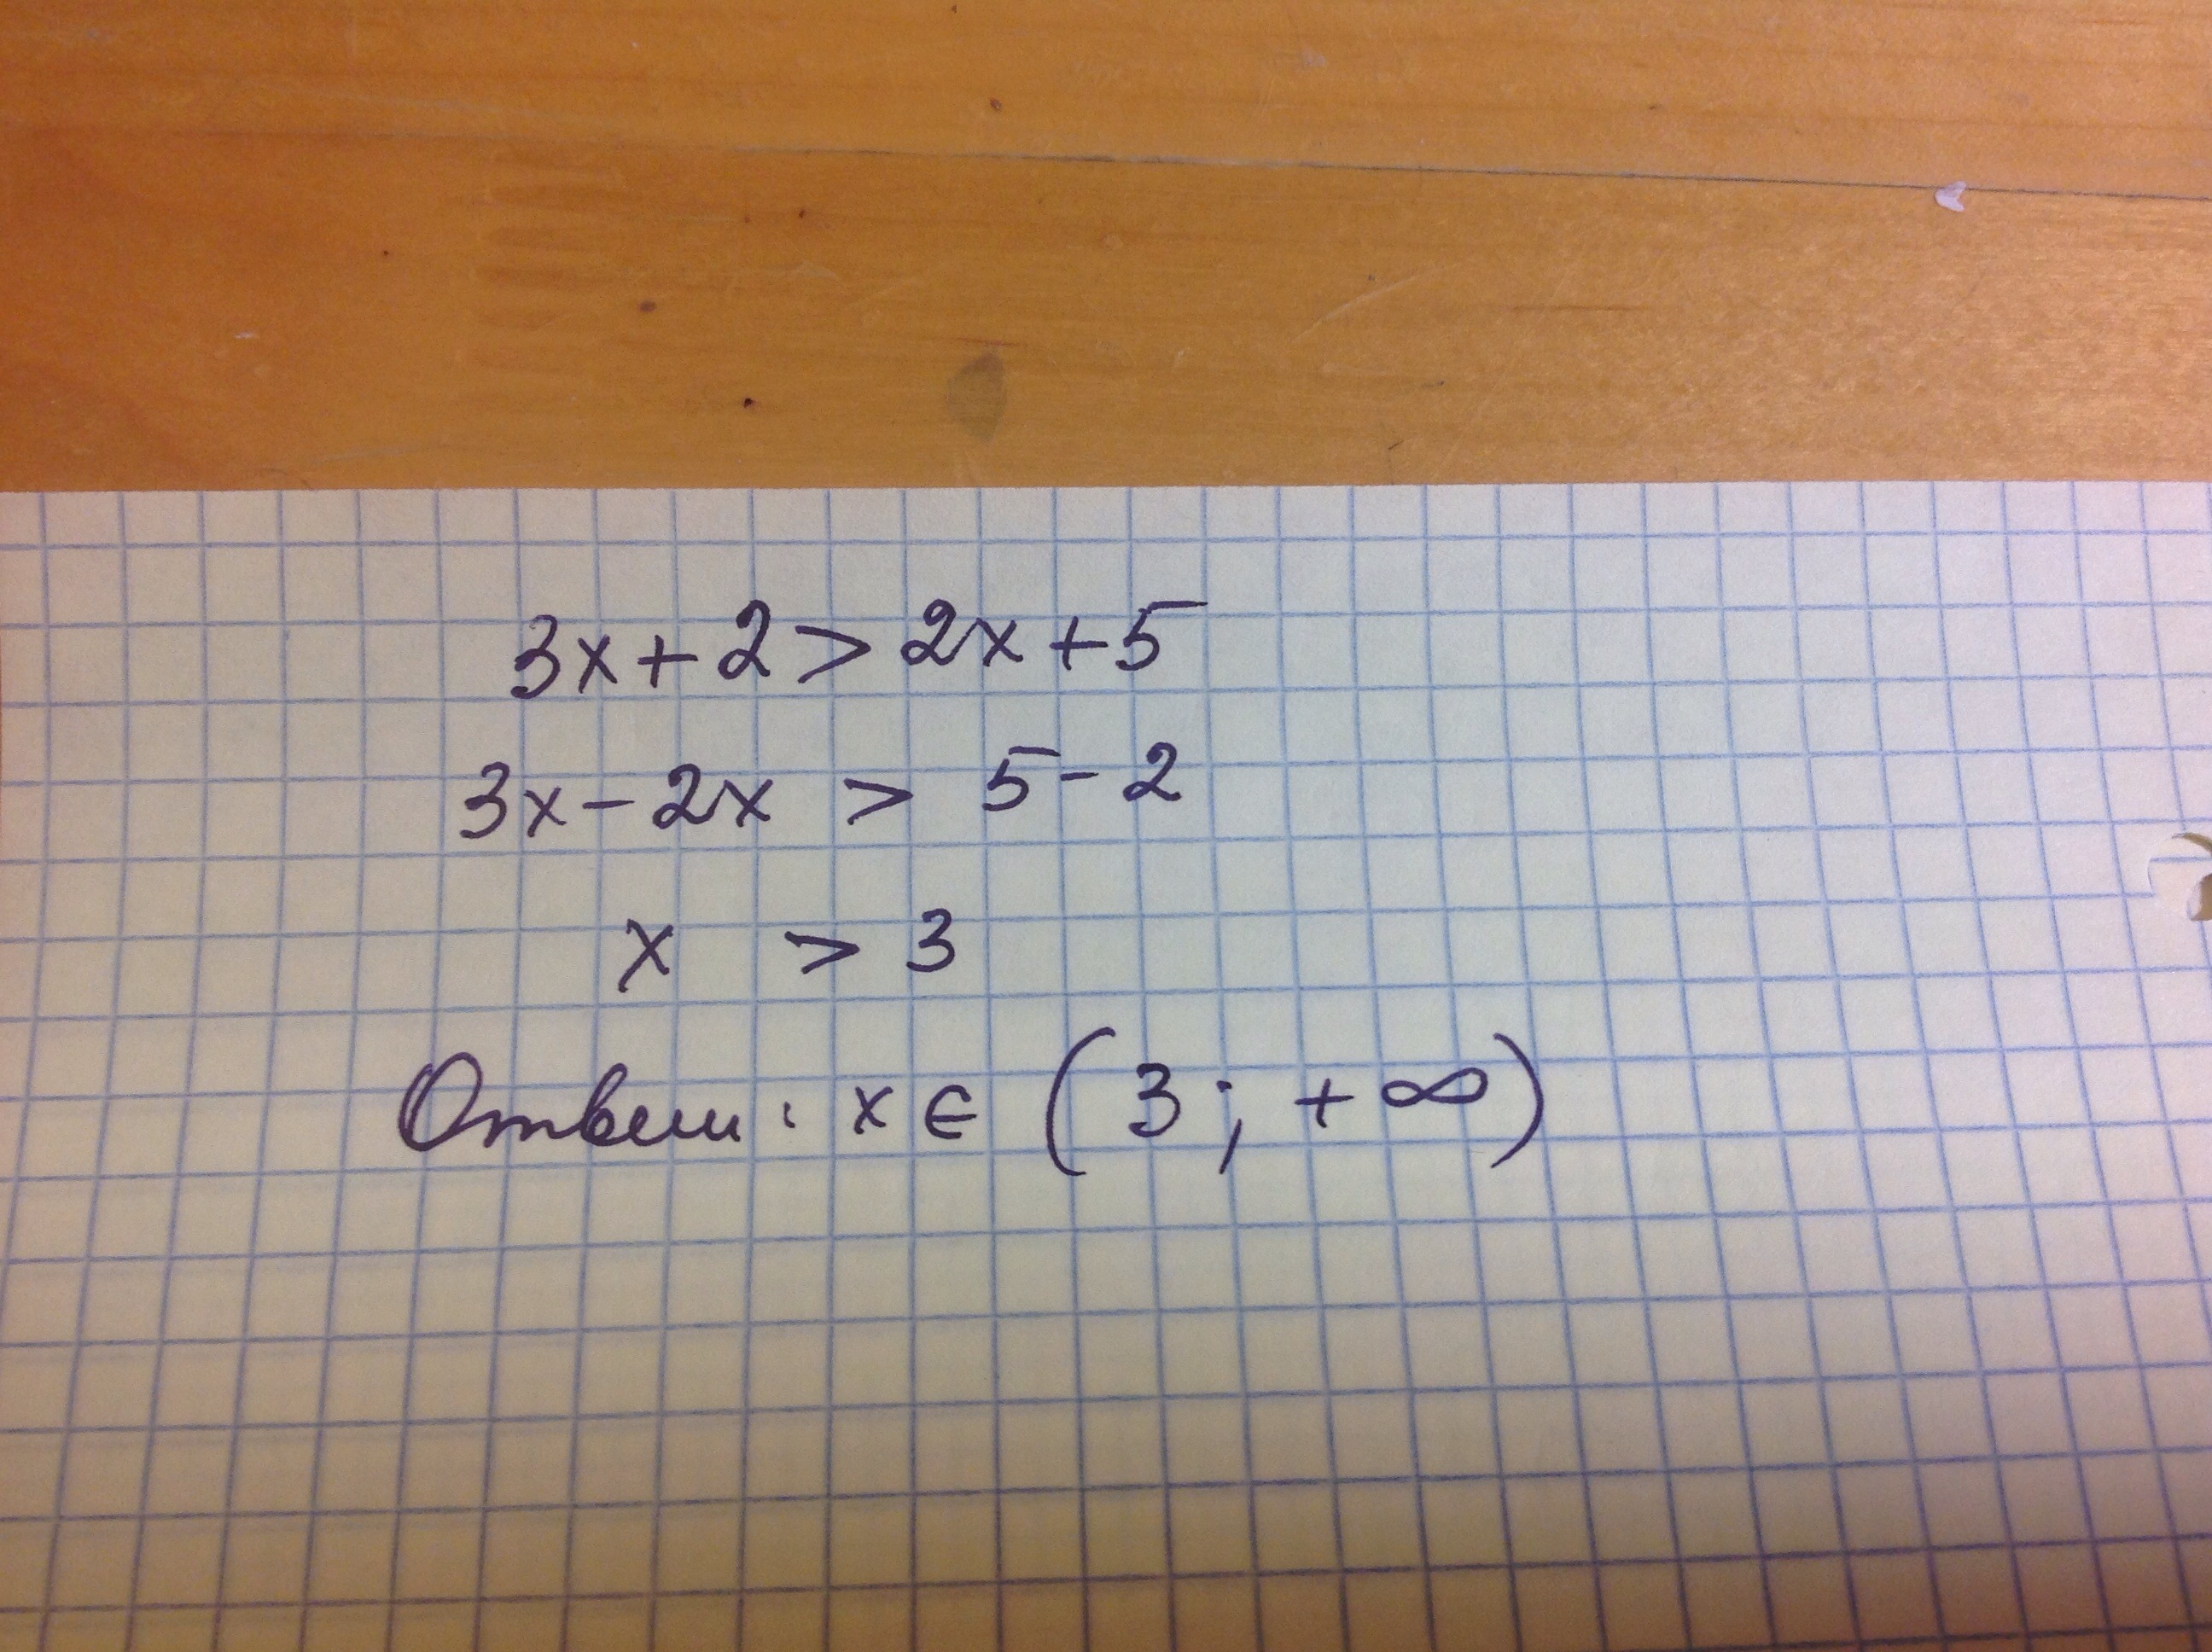 3x+2>2x+5
3x-2x > 5-2
x > 3
Ответ: x∈(3; +∞)